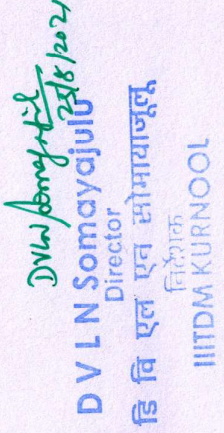 DVLN Somayajulu
23/8/2021
D V L N Somayajulu
Director
डि वि एल एन सोमायाजूलू
निदेशक
IIITDM KURNOOL